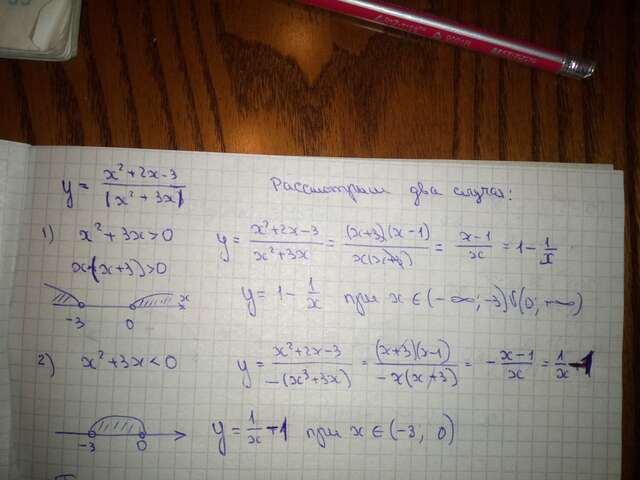 y = (x²+2x-3)/|x²+3x| Рассмотрим два случая:
1) x²+3x>0 y = (x²+2x-3)/(x²+3x) = (x+3)(x-1)/x(x+3) = (x-1)/x = 1 - 1/x
x(x+3)>0
-3 0 x y = 1 - 1/x при x ∈ (-∞; -3)∪(0; +∞)
2) x²+3x<0 y = (x²+2x-3)/-(x²+3x) = (x+3)(x-1)/-x(x+3) = - (x-1)/x = 1/x - 1
-3 0 y = 1/x - 1 при x ∈ (-3; 0)